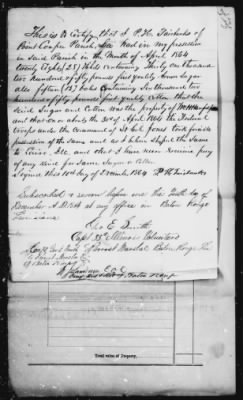 This is to certify that I P. H. Fairbanks of
Point Coupee Parish, La had in my possession
in said Parish in the Month of April 1864
twenty eight (28) Hhds Containing thirty one thousand
two hundred & fifty pounds first quality brown sugar
also fifteen (15) bales Containing six thousand two
hundred & fifty pounds first quality Cotton that the
said sugar and Cotton was the property of
and that on or about the 30th of April 1864 the Federal
troops under the Command of Lt Col Jones took forcible
possession of the same and as I when shipped the same
to and that I have never receive pay
of any kind for same Sugar or Cotton
Signed this 10th day of December 1864 P H Fairbanks
Subscribed & sworn before me this tenth day of
December A.D. 1864 at my office in Baton Rouge
Louisiana
Geo E. Smith
Capt Illinois Volunteers
Provost Marshal Baton Rouge La
Total value of Property,